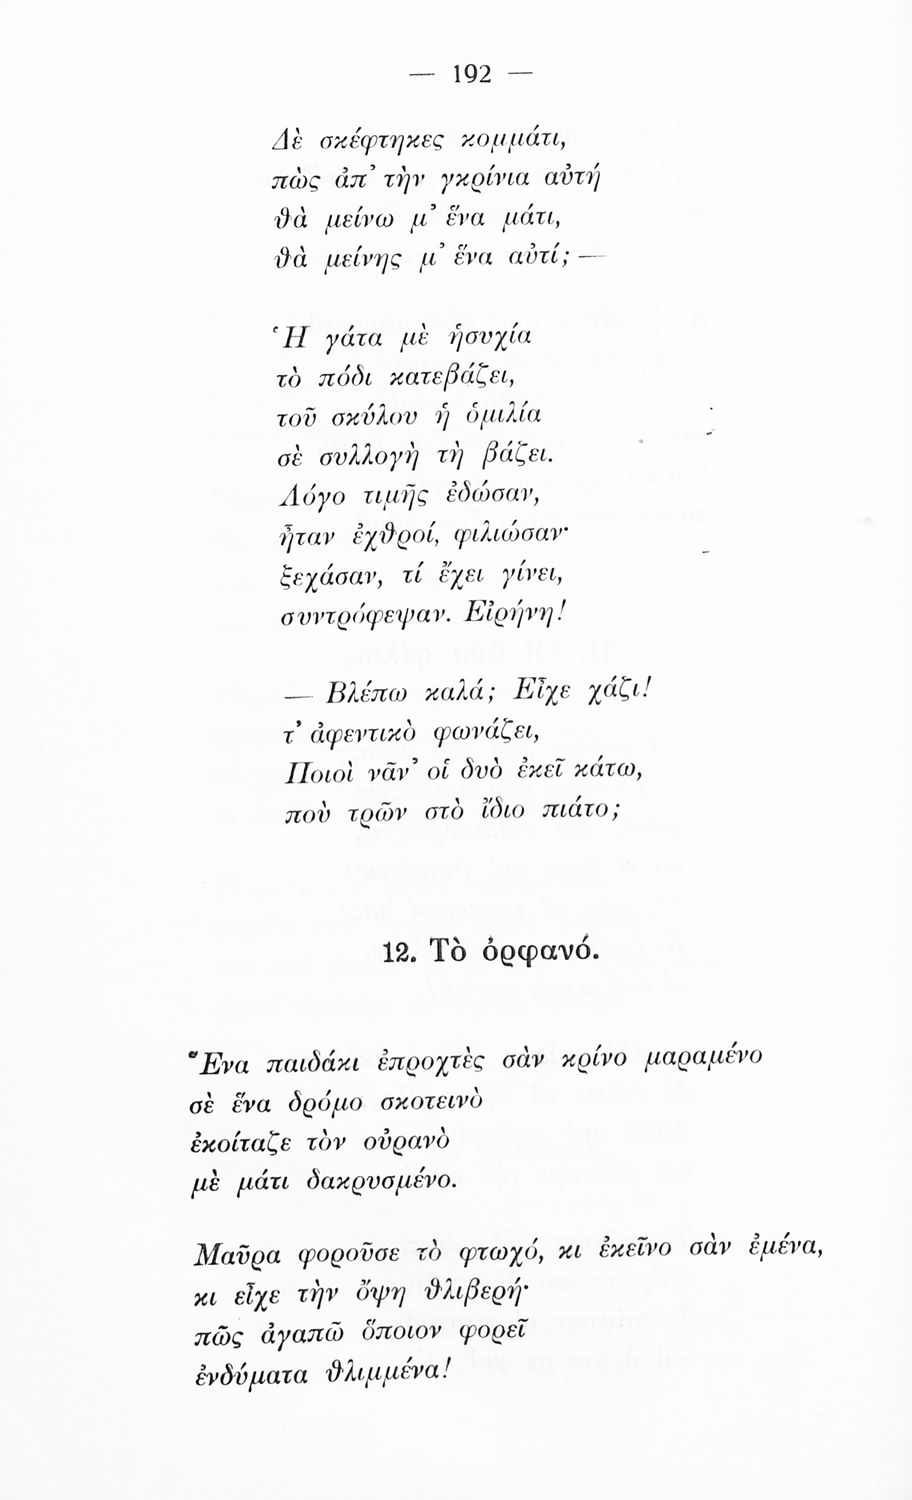 — 192 —
Δὲ σκέφτηκες κομμάτι,
πὼς ἀπ’ τὴν γκρίνια αὐτή
θὰ μείνω μ’ ἕνα μάτι,
θὰ μείνης μ’ ἕνα αὐτί; —
Ἡ γάτα μὲ ἡσυχία
τὸ πόδι κατεβάζει,
τοῦ σκύλου ἡ ὁμιλία
σὲ συλλογὴ τὴ βάζει.
Λόγο τιμῆς ἐδώσαν,
ἦταν ἐχθροί, φιλιώσαν·
ξεχάσαν, τί ἔχει γίνει,
συντρόφεψαν. Εἰρήνη!
— Βλέπω καλά; Εἶχε χάζι!
τ’ ἀφεντικὸ φωνάζει,
Ποιοὶ νἆν’ οἱ δυὸ ἐκεῖ κάτω,
ποὺ τρῶν στὸ ἴδιο πιάτο;
12. Τὸ ὀρφανό.
Ἕνα παιδάκι ἐπροχτὲς σὰν κρίνο μαραμένο
σὲ ἕνα δρόμο σκοτεινὸ
ἐκοίταζε τὸν οὐρανὸ
μὲ μάτι δακρυσμένο.
Μαῦρα φοροῦσε τὸ φτωχό, κι ἐκεῖνο σὰν ἐμένα,
κι εἶχε τὴν ὄψη θλιβερή·
πῶς ἀγαπῶ ὅποιον φορεῖ
ἐνδύματα θλιμμένα!